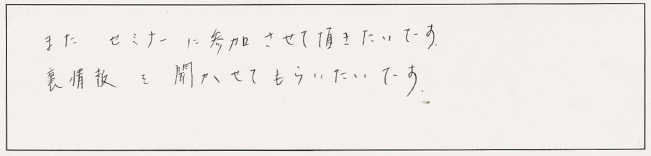 また セミナーに参加させて頂きたいです。
裏情報を聞かせてもらいたいです。